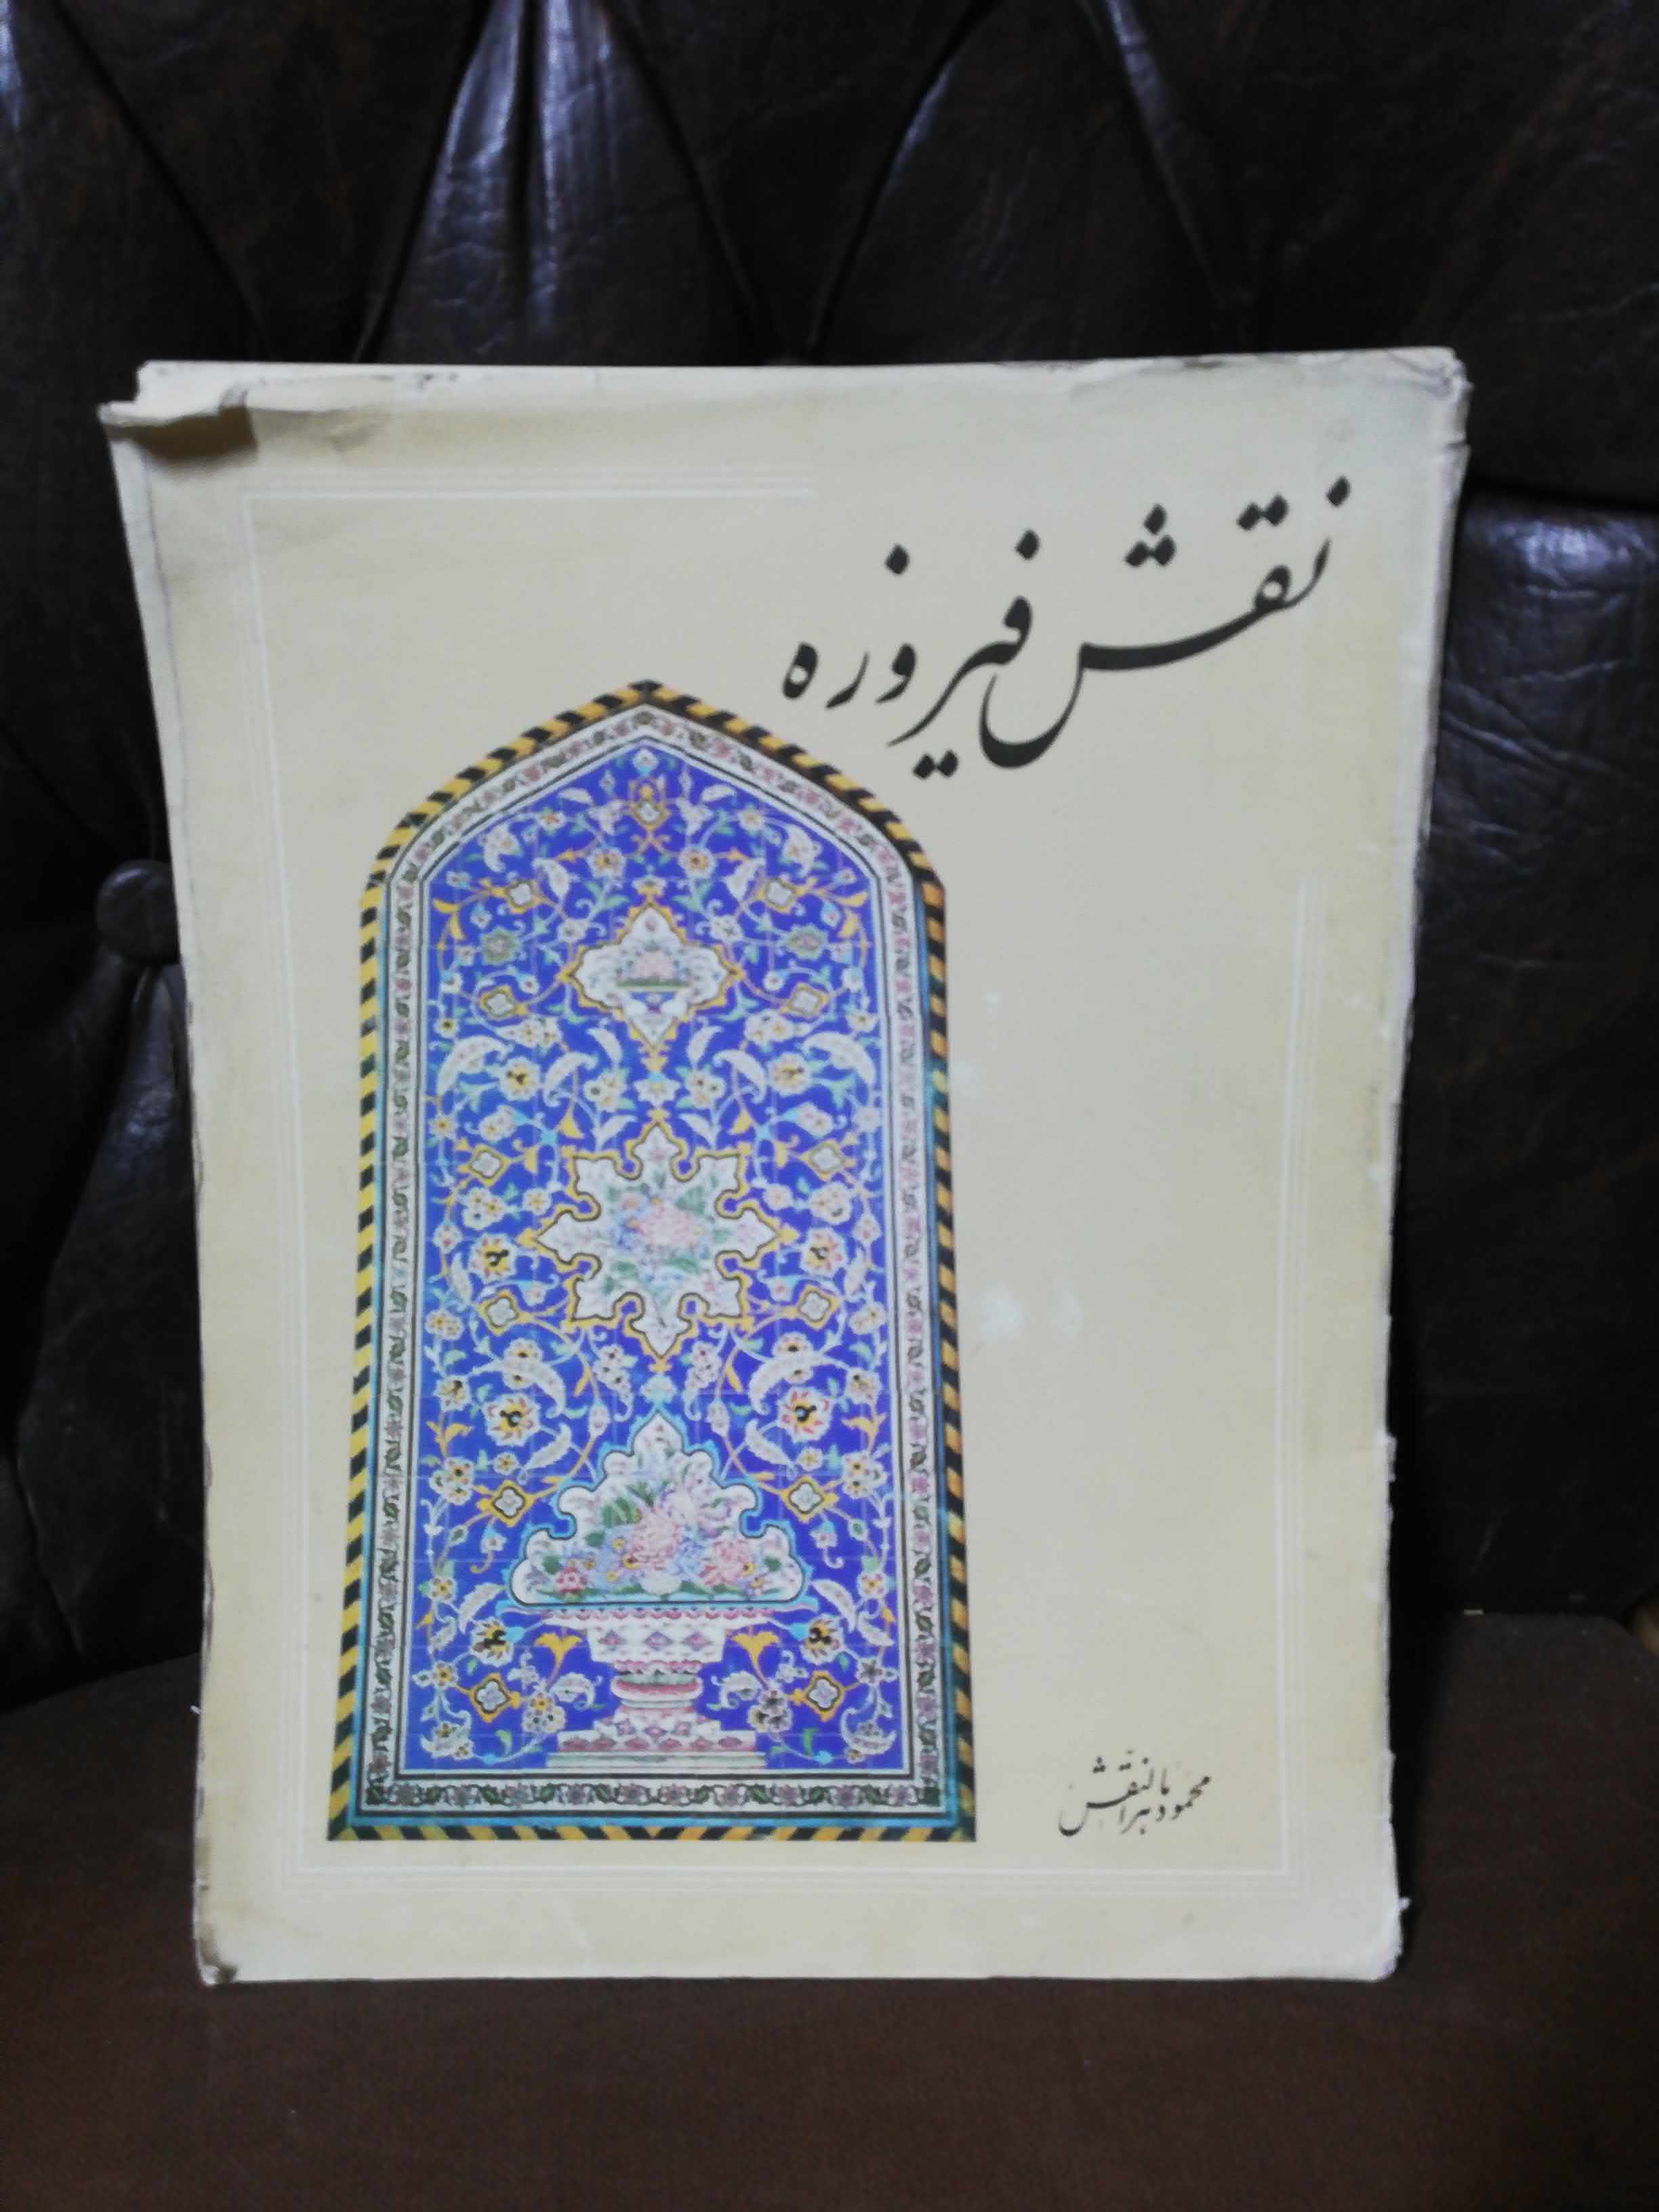 نقش فیروزه
محمود ماهرالنقش